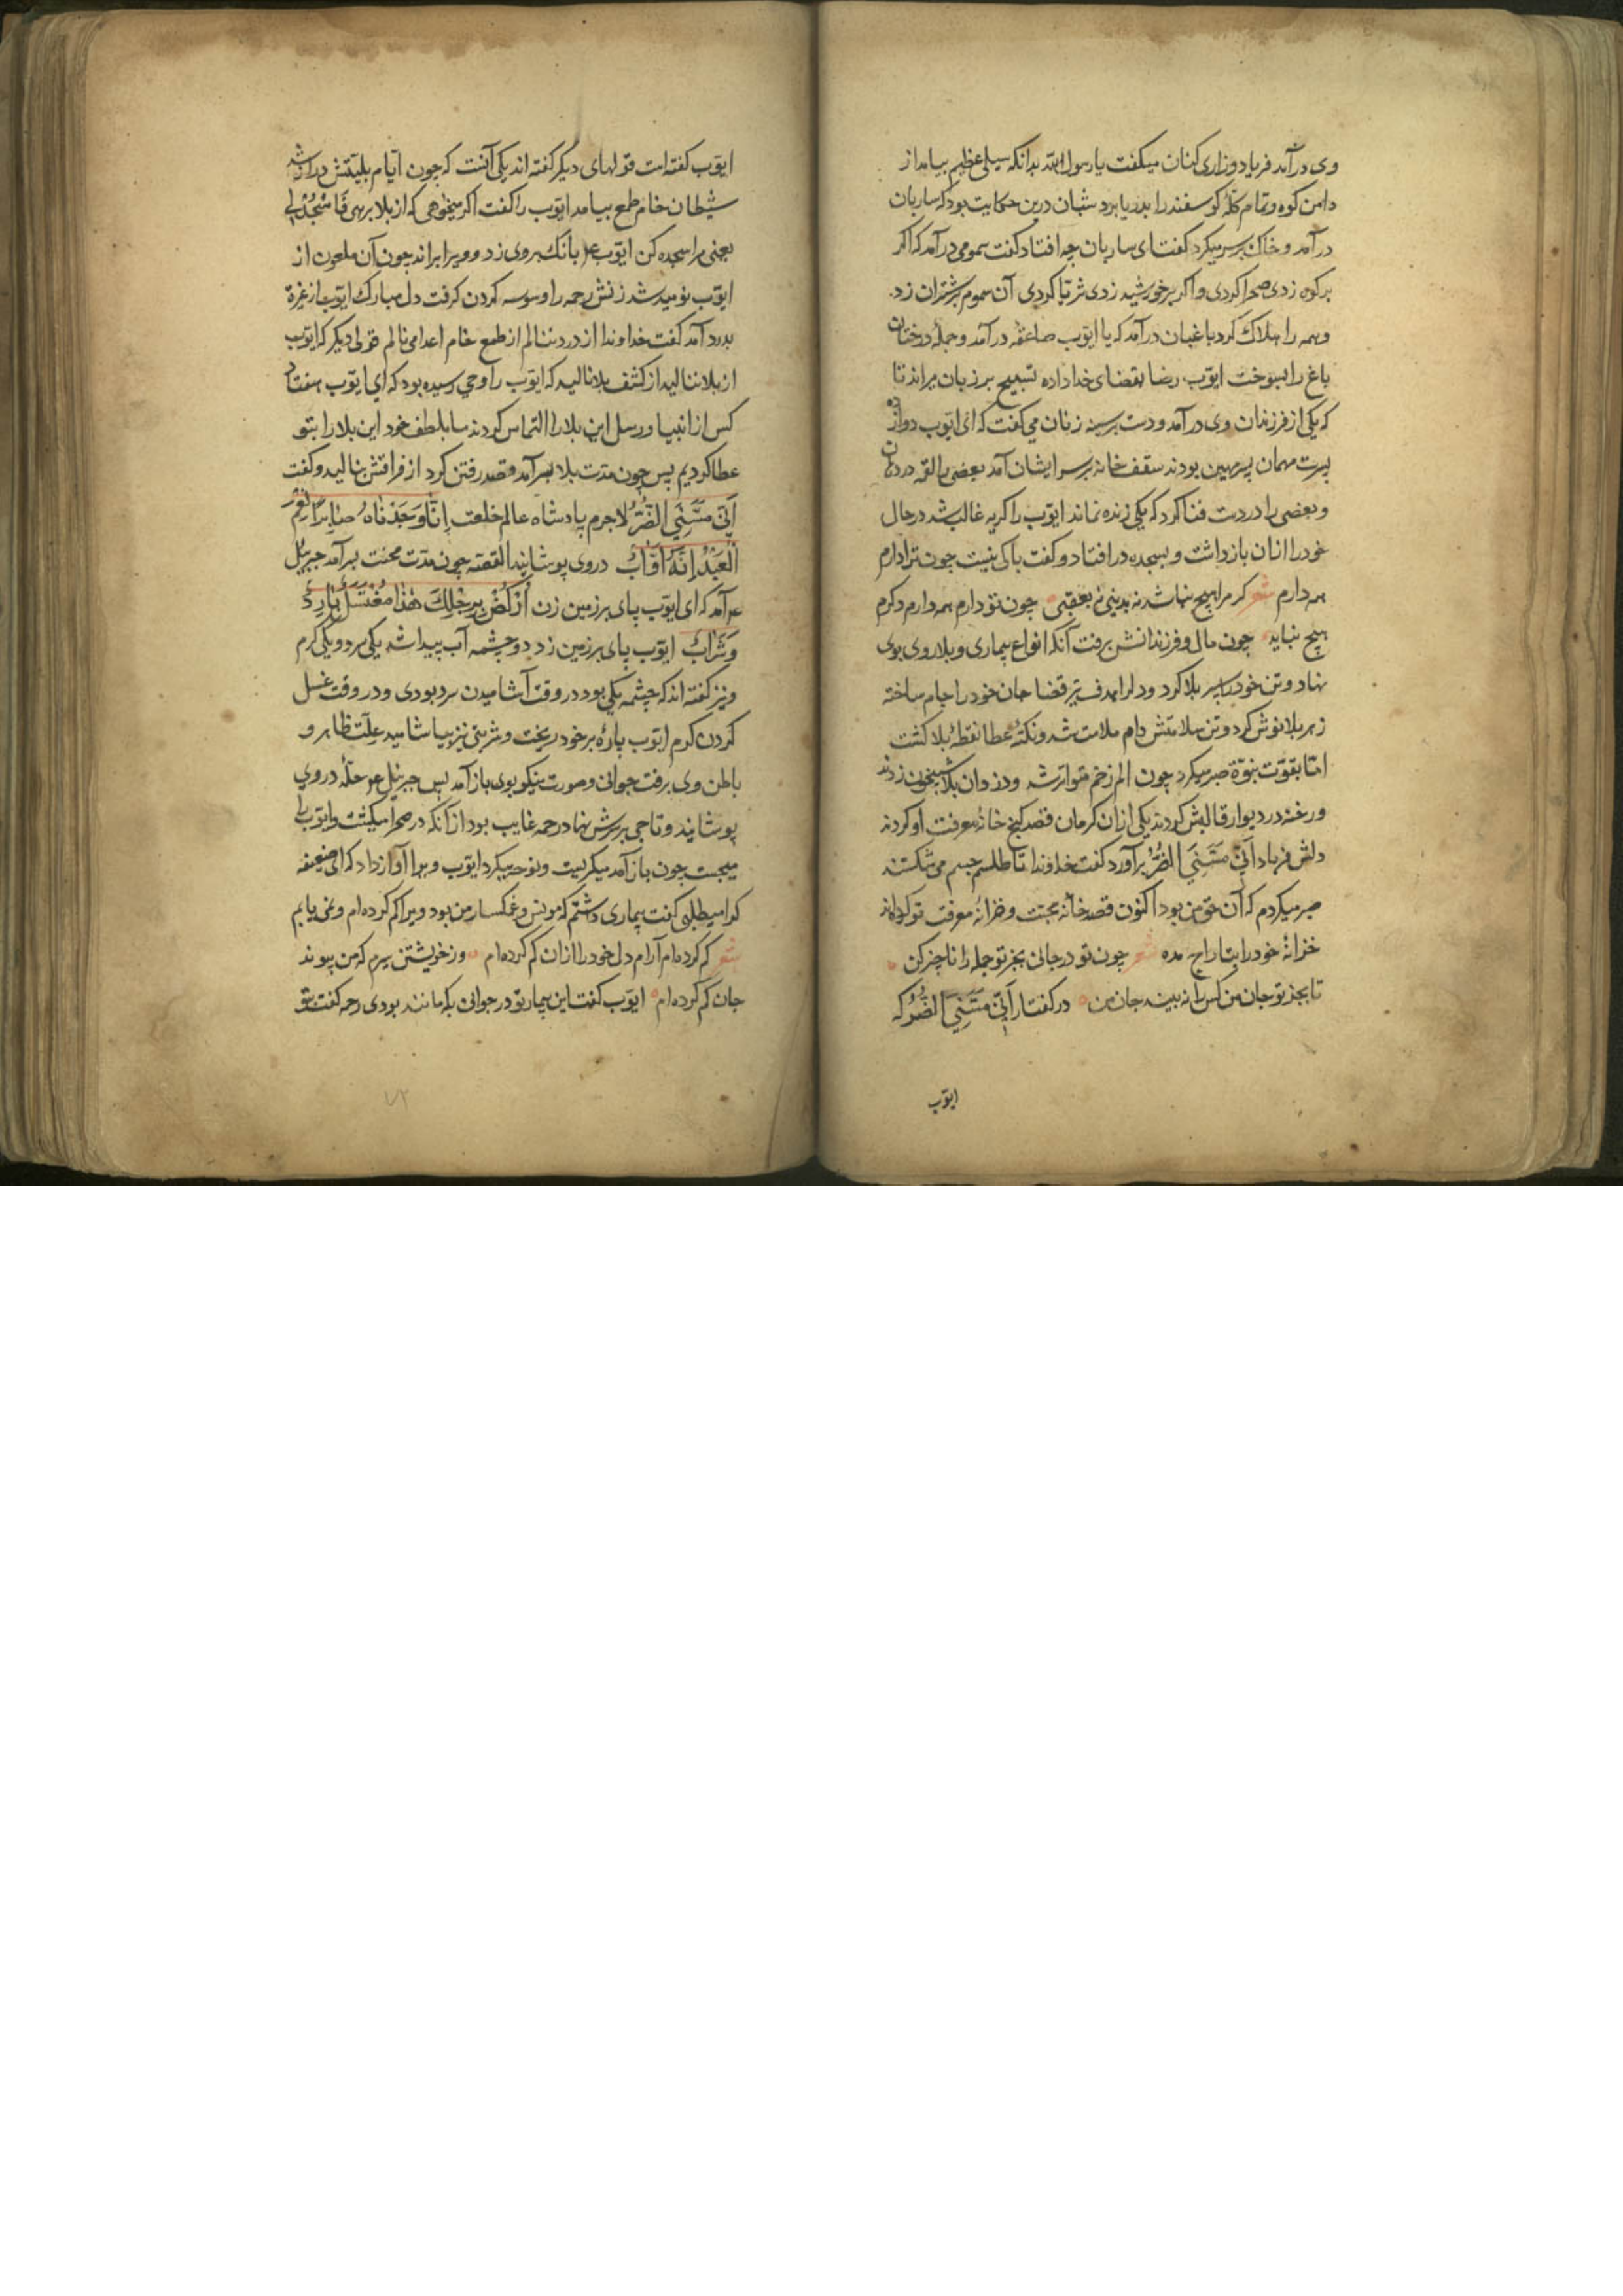 وی درآمد فریاد و زاری کنان میکفت یا رسول الله بدانکه سیلی عظیم بیامد از
دامن کوه و تمام کلهٔ کوسفند را بدریا برد شبان درین حکایت بود که ساربان
درآمد و خاک بر سر میکرد کفت ای ساربان چه افتاد کفت سمومی درآمد که اکر
بر کوه زدی صحرا کردی و اکر بر خورشید زدی ثریا کردی آن سموم بر شتران زد
و همه را هلاک کرد باغبان درآمد که یا ایوب صاعقه درآمد و جملهٔ درختان
باغ را بسوخت ایوب رضا بقضای خدا داده تسبیح بر زبان میراند تا
که یکی از فرزندان وی درآمد و دست بر سینه زنان می کفت که ای ایوب دوازده
پسرت مهمان پسر مهین بودند سقف خانه بر سر ایشان آمد بعضی را لقمه در دهان
و بعضی را در دست فنا کرد که یکی زنده نماند ایوب را کریه غالب شد در حال
خود را از ان بازداشت و بسجده در افتاد و کفت باکی نیست چون ترا دارم
همه دارم شعر کر مرا هیچ نباشد نه بدینی نه بعقبی چون تو دارم همه دارم دکرم
هیچ نباید چون مال و فرزندانش برفت آنکه انواع بیماری و بلا روی بوی
نهاد و تن خود را سپر بلا کرد و دل را هدف تیر قضا جان خود را جام ساخته
زهر بلا نوش کرد و تن سلامتش دام ملامت شد و نکتهٔ عطا نقطهٔ بلا کشت
اما بقوت نبوة صبر میکرد چون الم زخم متواتر شد و دزدان بلا شبیخون زدند
و رخنه در دیوار قالبش کردند یکی از ان کرمان قصد کنج خانهٔ معرفت او کردند
دلش فریاد اَنّی مَسَّنِیَ الضُّرُّ برآورد کفت خداوندا تا طلسم جسم می شکستند
صبر میکردم که آن حق من بود اکنون قصد خانهٔ محبت و خزانهٔ معرفت تو کرده اند
خزانهٔ خود را بتاراج مده شعر چون تو در جانی بجز تو جمله را ناچیز کن
تا بجز تو جان من کس را نه بیند جان من در کفتار اَنّی مَسَّنِیَ الضُّرُّ که
ایوب
ایوب کفته است قولهای دیکر کفته اند یکی آنست که چون ایام بلیتش دراز شد
شیطان خام طمع بیامد ایوب را کفت اکر میخواهی که از بلا برهی فَاسْجُدْ لی
یعنی مرا سجده کن ایوب ع م بانک بر وی زد و ویرا براند چون آن ملعون از
ایوب نومید شد زنش رحمه را وسوسه کردن کرفت دل مبارک ایوب از غیرة
بدرد آمد کفت خداوندا از درد ننالم از طمع خام اعدا می نالم قولی دیکر که ایوب
از بلا ننالید از کشف بلا نالید که ایوب را وحی رسیده بود که ای ایوب هفتاد
کس از انبیا و رسل این بلا را التماس کردند ما بلطف خود این بلا را بتو
عطا کردیم پس چون مدت بلا بسر آمد و قصد رفتن کرد از فراقش بنالید و کفت
اَنّی مَسَّنِیَ الضُّرُّ لا جرم پادشاه عالم خلعت اِنَّا وَجَدْنَاهُ صَابِراً نِعْمَ
الْعَبْدُ اِنَّهُ اَوَّابٌ در وی پوشانید القصه چون مدت محنت برآمد جبریئل
ع م آمد که ای ایوب پای بر زمین زن اُرْکُضْ بِرِجْلِکَ هٰذَا مُغْتَسَلٌ بَارِدٌ
وَشَرَابٌ ایوب پای بر زمین زد دو چشمه آب پیدا شد یکی سرد و یکی کرم
و نیز کفته اند که چشمه یکی بود در وقت آشامیدن سرد بودی و در وقت غسل
کردن کرم ایوب پارهٔ بر خود ریخت و شربتی نیز بیاشامید علت ظاهر و
باطن وی برفت جوانی و صورت نیکو بوی باز آمد پس جبریئل ع م حله در وی
پوشانید و تاجی بر سرش نهاد رحمه غایب بود از آنکه در صحرا میکشت و ایوب را
میجست چون باز آمد میکریست و نوحه میکرد ایوب ویرا آواز داد که ای ضعیفه
کرا میطلبی کفت بیماری داشتم که مونس و غمکسار من بود ویرا کم کرده ام و نمی یابم
شعر کم کرده ام آرام دل خود را از ان کم کرده ام وز خویشتن سیرم که من پیوند
جان کم کرده ام ایوب کفت این بیمار تو در جوانی بکه مانند بودی رحمه کفت بتو
۷۲